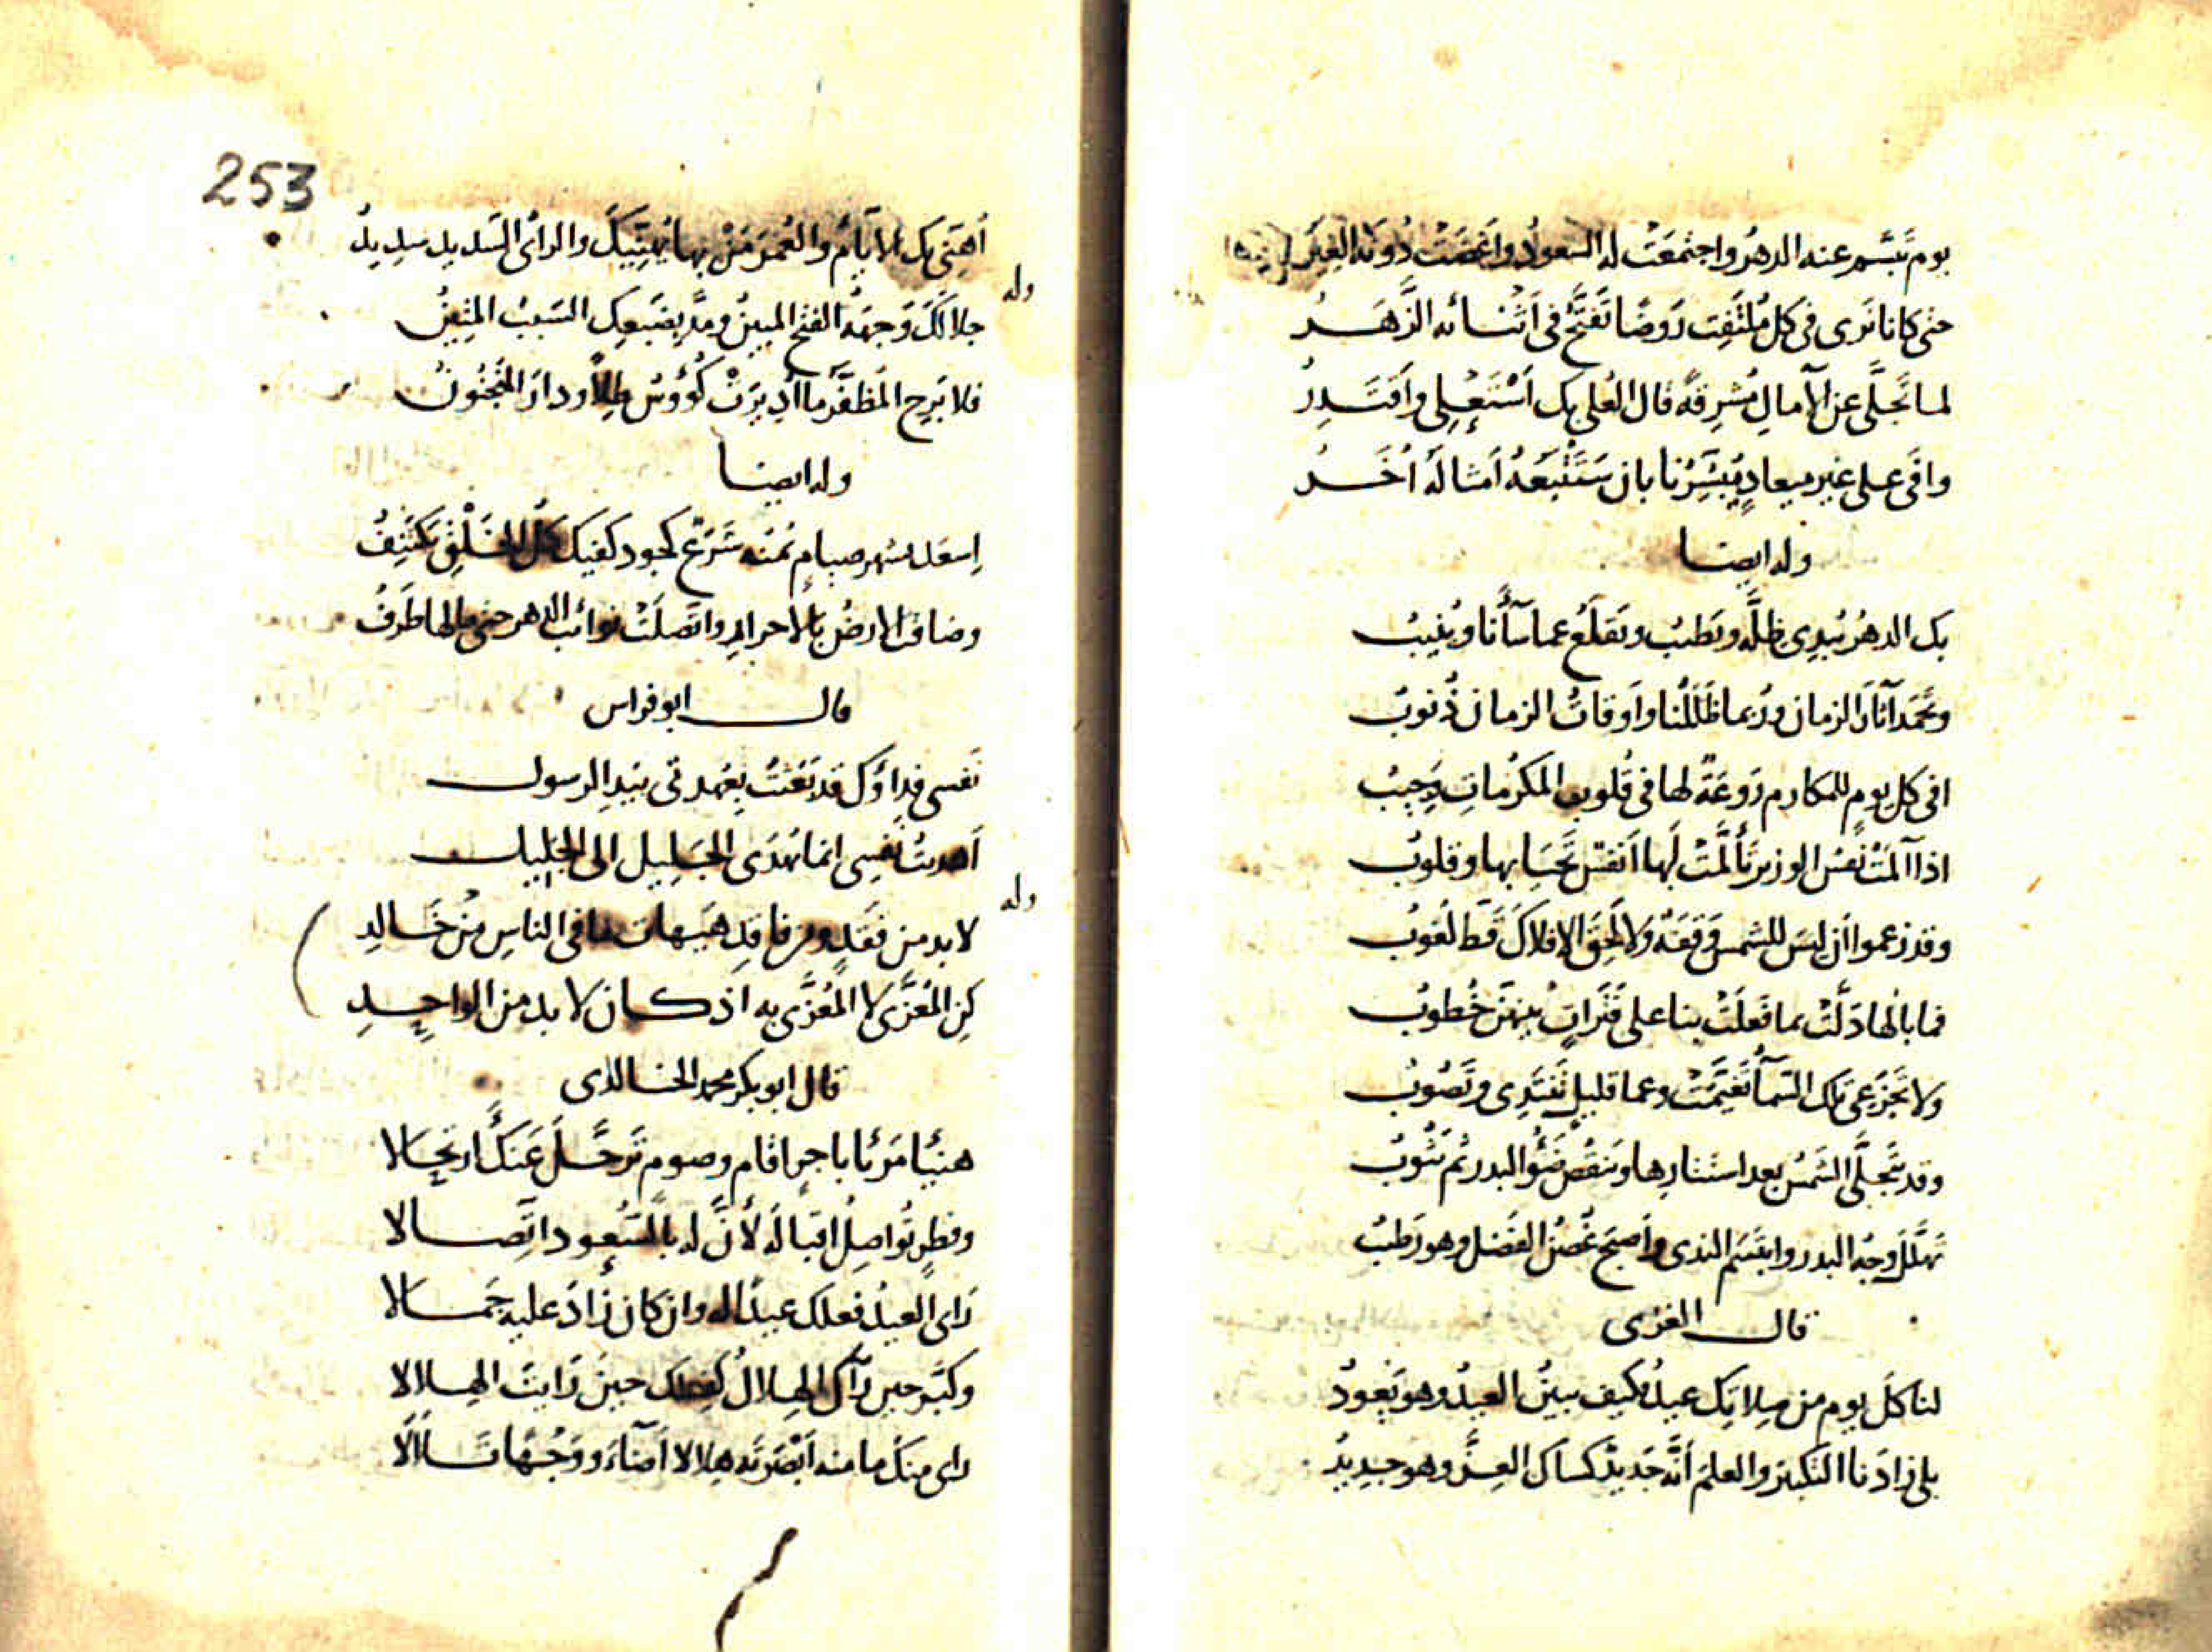 يوم تبسم عنه الدهر واجتمعت له السعود واغضت دونه الغير
حتى كانا نرى في كل ملتفت روضا تفتح في اثنائه الزهر
لما تجلى عن الآمال مشرقة قال العلى بك استعلى واقتدر
وافى على غير ميعاد يبشرنا بان ستتبعه امثاله اخر
وله ايضا
بك الدهر يبدى ظله ويطيب ويقلع عما ساءنا وينيب
ونحمد آثار الزمان وربما ظللنا واوقات الزمان ذنوب
افى كل يوم للمكارم روعة لها في قلوب المكرمات وجيب
اذا آلمت نفس الوزير تألمت لها انفس تحيا بها وقلوب
وقد زعموا ان ليس للشمس وقفة ولا لحق الافلاك قط لغوب
فما بالها دلت بما فعلت بنا على فترات بينهن خطوب
ولا تجزعى تلك السمآء تغيمت وعما قليل تبتدى وتصوب
وقد تجلى الشمس بعد استتارها وتنقص ضوء البدر ثم تثوب
تهلل وجه البدر وابتسم الندى واصبح غصن الفضل وهو رطيب
قال الغزى
لنا كل يوم من ميلادك عيد وكيف يبين العيد وهو يعود
بلى زادنا التكبير والعلم انه جديد كساك العز وهو جديد
253
اهنى بك الايام والعمر من بها يهنيك والراى السديد سديد
وله
جلا لك وجهه الفتح المبين ومد بضبعك السبب المتين
فلا برح المظفر ما اديرت كؤوس طلا ودار المنجنون
وله ايضا
اسعد بشهر صيام ثمنه شرع لجود كفيك كل الخلق يكتنف
وضاقت الارض بالاحرار واتصلت نوائب الدهر حتى ما لها طرف
قال ابو فراس
نفسى فداؤك قد بعثت بعهدتى بيد الرسول
اهديت نفسى انما يهدى الجليل الى الجليل
وله
لا بد من فقد ومن فاقد هيهات ما في الناس من خالد
كن المعزى لا المعزى به اذ كان لا بد من الواحد
قال ابو بكر محمد الخالدى
هنيئا مريا باجر اقام وصوم ترحل عنك ارتحالا
وفطر تواصل اقباله لأن له بالسعود اتصالا
راى العيد فعلك عيدا له وان كان زاد عليه جمالا
وكبر حين رآك الهلال كفعلك حين رايت الهلالا
راى منك ما منه ابصرته هلالا اضآء ووجها تلالا